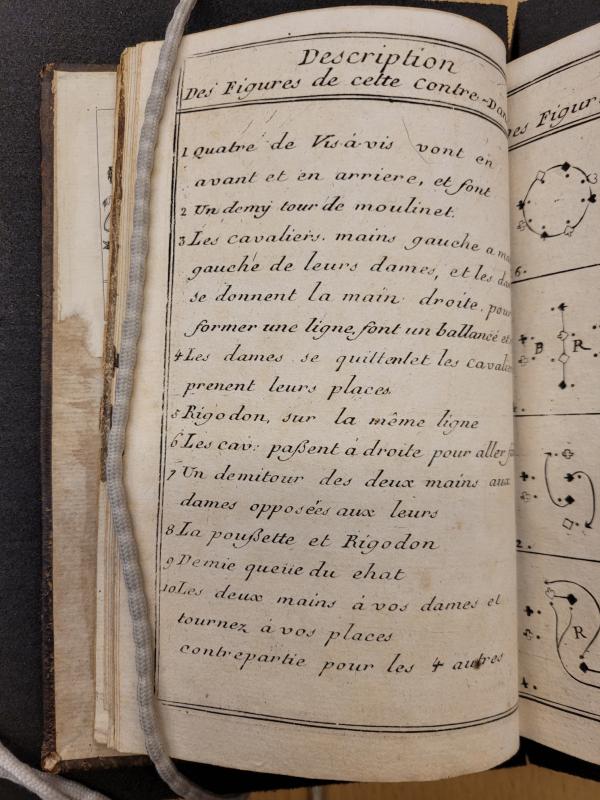 Description
Des Figures de cette Contre-Dan
1 Quatre de Vis-à-vis vont en
avant et en arriere, et font
2 Un demy tour de moulinet.
3 Les cavaliers. mains gauche a ma
gauche de leurs dames, et les da
se donnent la main droite. pour
former une ligne, font un ballancé et
4 Les dames se quittent et les cavalie
prenent leurs places.
5 Rigodon, sur la même ligne
6 Les cav: paßent á droite pour aller f
7 Un demitour des deux mains aux
dames opposées aux leurs
8 La poußette et Rigodon
9 Demie queüe du chat
10 Les deux mains á vos dames et
tournez á vos places
contrepartie pour les 4 autres
es Figur
6.
B R
2.
R
4.